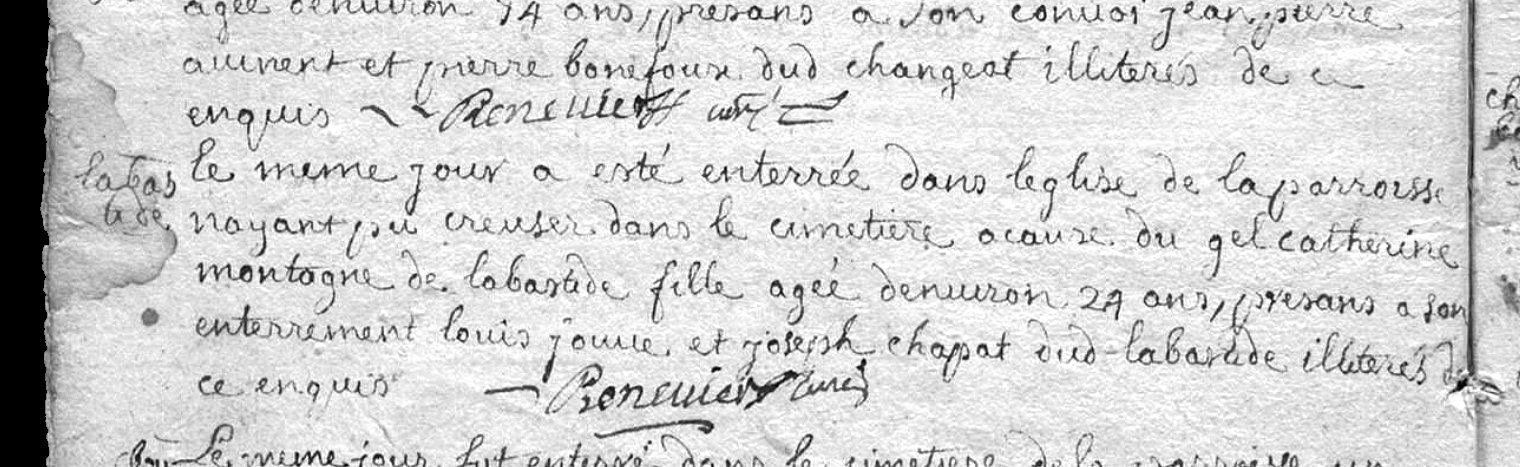 agée denuiron 74 ans, presans a son conuoi jean pierre
auinent et pierre bonefoux dud changeat illiterés de ce
enquis Reneuier curé
labas
tide
le meme jour a esté enterrée dans leglise de la parroisse
nayant pu creuser dans le cimetiere acause du gel catherine
montagne de labastide fille agée denuiron 24 ans, presans a son
enterrement louis jouue et joseph chapat dud labastide illiterés de
ce enquis Reneuier curé
Le meme jour fut enterré dans le cimetiere de la parroisse un